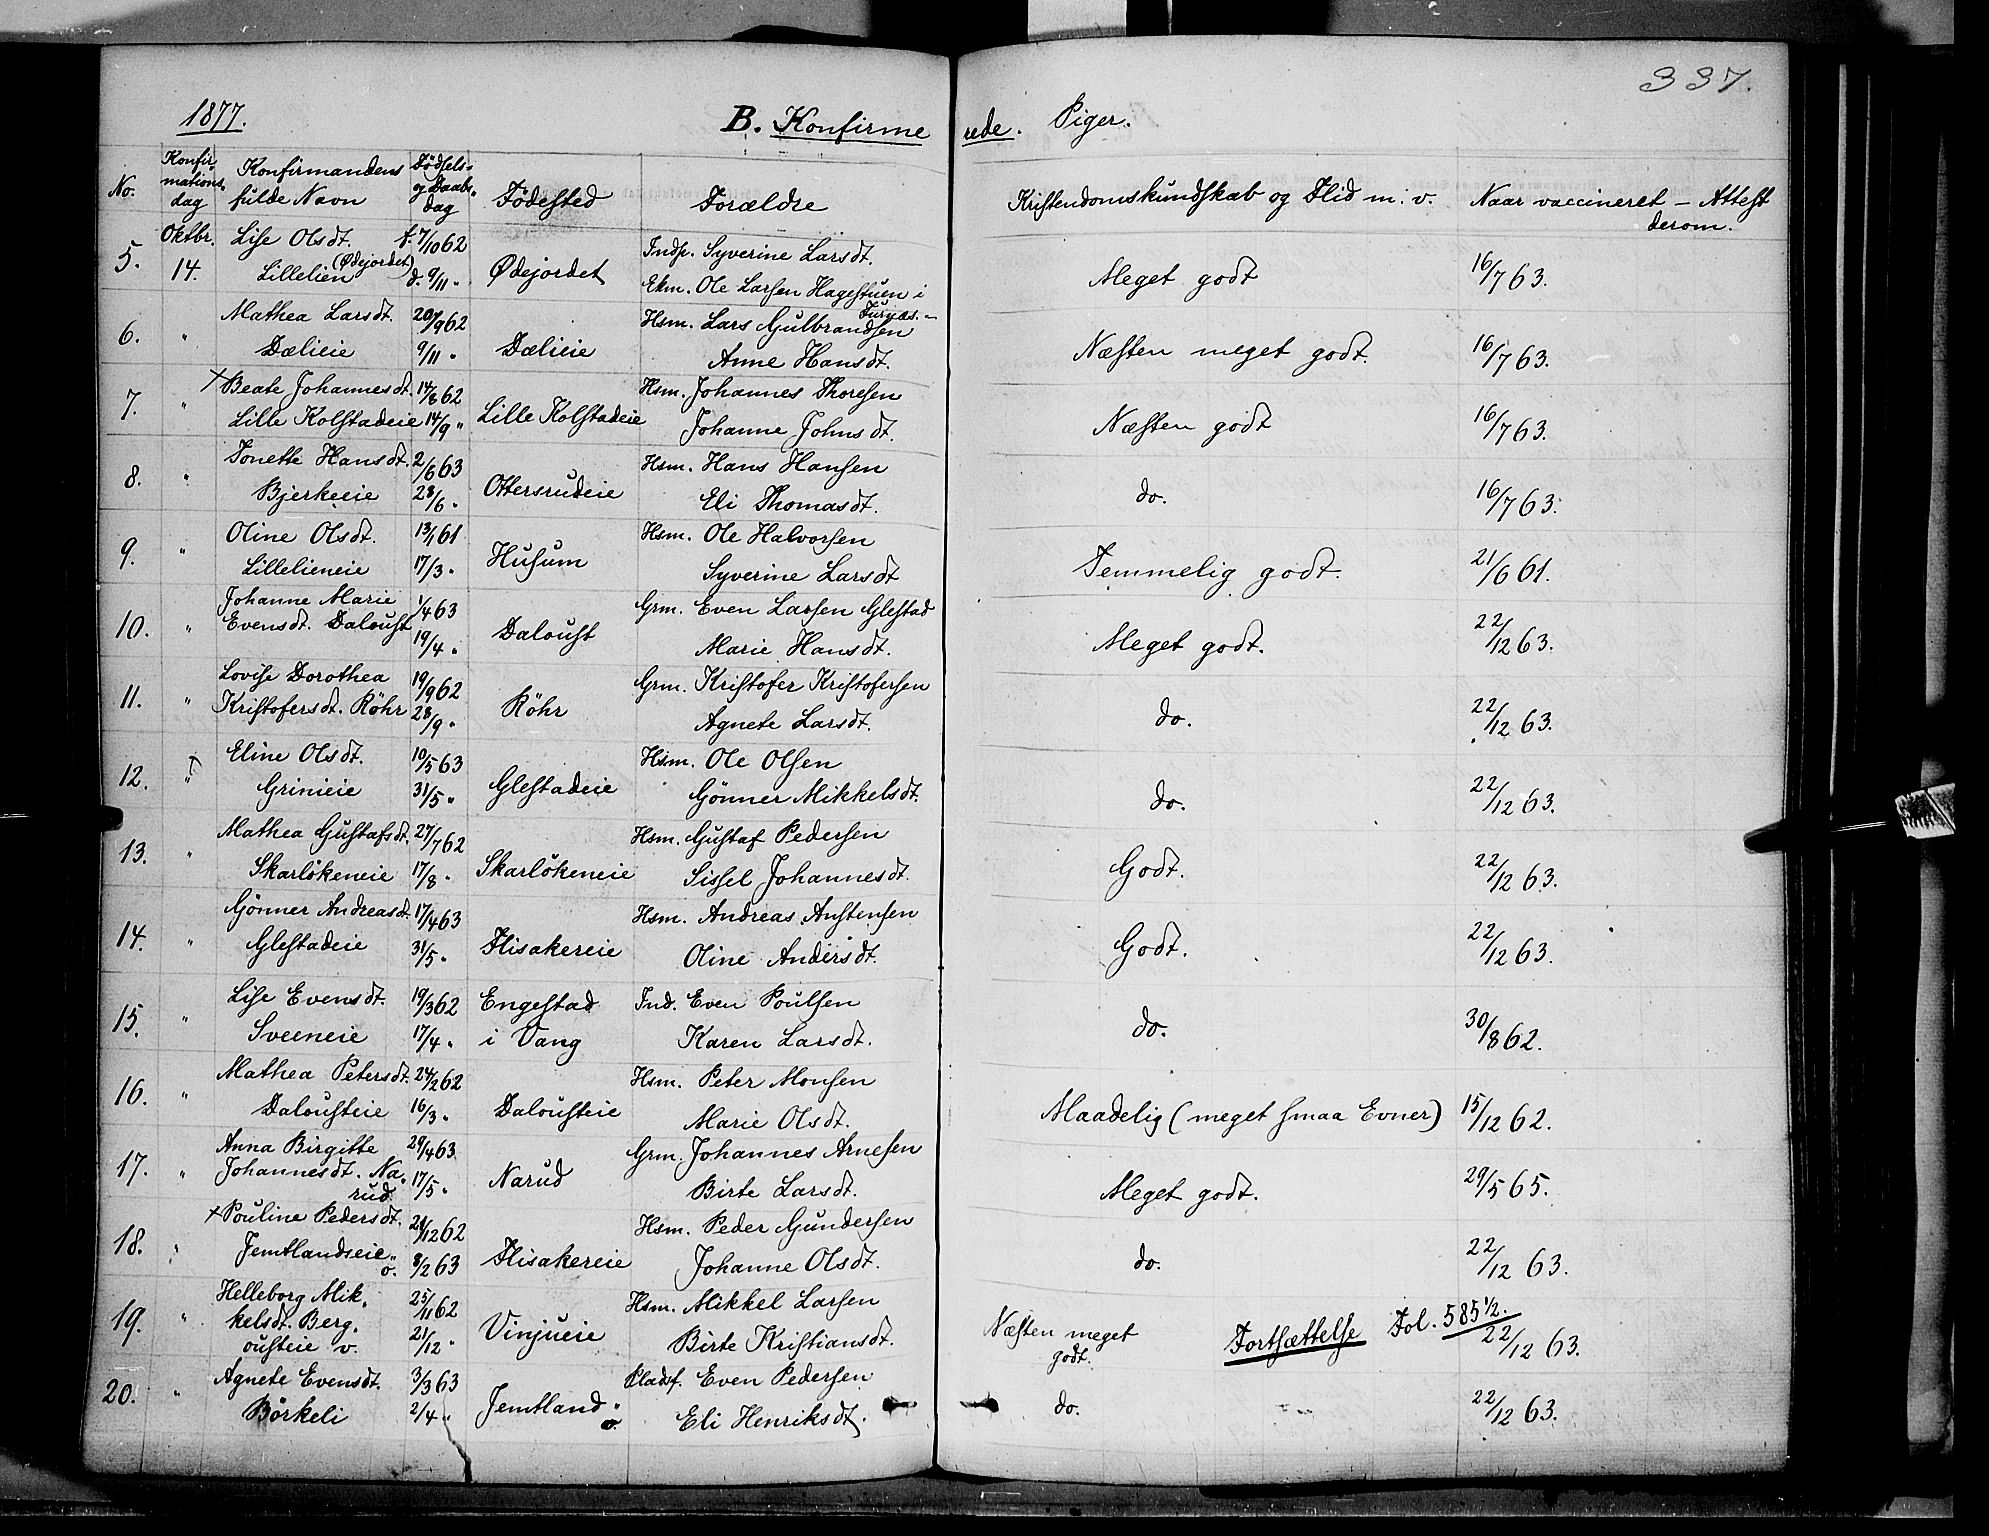 337.
1877. B. Konfirmerede. Piger.
No. Konfirmations-dag Konfirmandens fulde Navn Fødsels- og Daabs-dag Fødested Forældre Kristendomskundskab og Flid m. v. Naar vaccineret – Attest derom.
5. Oktbr. 14. Lise Olsdt. f. 7/10 62 Indp. Syverine Larsdt.
Lillelien (Ødejordet) d. 9/11 " Ødejordet Ekm. Ole Larsen Hagestuen i Furnæs. – Meget godt 16/7 63.
6. " Mathea Larsdt. 20/9 62 Hsm. Lars Gulbrandsen
Dælieie 9/11 " Dælieie Anne Hansdt. Næsten meget godt. 16/7 63.
7. " + Beate Johannesdt. 14/8 62 Hsm. Johannes Thoresen
Lille Kolstadeie 14/9 " Lille Kolstadeie Johanne Johnsdt. Næsten godt 16/7 63.
8. " Tonette Hansdt. 2/6 63 Hsm. Hans Hansen
Bjerkeeie 28/6 " Ottersrudeie Eli Thomasdt. do. 16/7 63.
9. " Oline Olsdt. 13/1 61 Hsm. Ole Halvorsen
Lillelieneie 17/3 " Husum Syverine Larsdt Temmelig godt. 21/6 61.
10. " Johanne Marie 1/4 63 Grm. Even Larsen Glestad
Evensdt. Daloust 19/4 " Daloust Marie Hansdt. Meget godt. 22/12 63.
11. " Lovise Dorothea 19/9 62 Grm. Kristofer Kristofersen
Kristofersdt. Röhr 28/9 " Röhr Agnete Larsdt. do. 22/12 63.
12. " Eline Olsdt. 10/5 63 Hsm. Ole Olsen
Grinieie 31/5 " Glestadeie Gönner Mikkelsdt. do. 22/12 63.
13. " Mathea Gustafsdt. 27/7 62 Hsm. Gustaf Pedersen
Skarlökeneie 17/8 " Skarlökeneie Sissel Johannesdt. Godt. 22/12 63.
14. " Gönner Andreasdt. 17/4 63 Hsm. Andreas Anstensen
Glestadeie 31/5 " Flisakereie Oline Andersdt. Godt. 22/12 63.
15. " Lise Evensdt. 19/3 62 Engestad Ind. Even Poulsen
Sveeneie 17/4 " i Vang Karen Larsdt. do. 30/8 62.
16. " Mathea Petersdt. 24/2 62 Hsm. Peter Monsen
Dalousteie 16/3 " Dalousteie Marie Olsdt. Maadelig (meget smaa Evner) 15/12 62.
17. " Anna Birgitte 29/4 63 Grm. Johannes Arnesen
Johannesdt. Narud 17/5 " Narud Birte Larsdt. Meget godt. 29/5 65.
18. " + Pouline Pedersdt. 21/12 62 Hsm. Peder Gundersen
Jemtlandseie ö. 8/2 63 Flisakereie Johanne Olsdt. do. 22/12 63.
19. " Helleborg Mik- 25/11 62 Hsm. Mikkel Larsen
kelsdt. Bergousteie v. 21/12 " Vinjueie Birte Kristiansdt. Næsten meget godt. Fortsættelse Fol. 585 1/2. 22/12 63.
20. " Agnete Evensdt. 3/3 63 Pladsf. Even Pedersen
Börkeli 2/4 " Jemtland ö. Eli Henriksdt. do. 22/12 63.